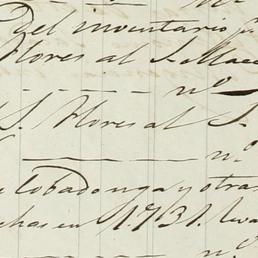 Del inventario
Flores al S. Mae
nº
S. Flores al S.
nº
Cobadonga y otras
chas en 1731.
nº